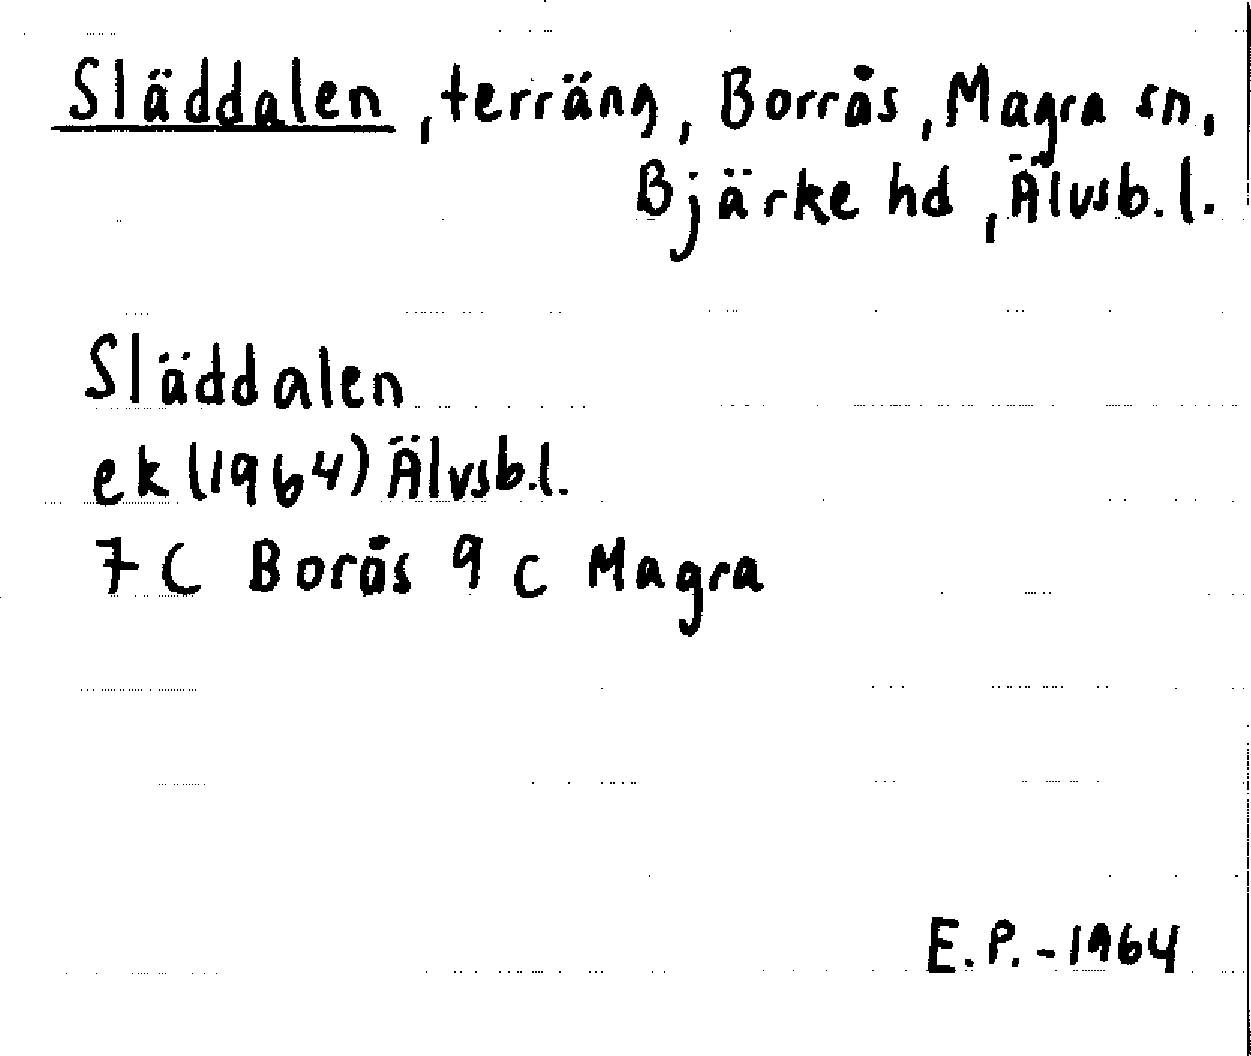 Släddalen, terräng, Borrås, Magra sn,
Bjärke hd, Älvsb.l.
Släddalen
ek (1964) Älvsb.l.
7 C Borås 9 c Magra
E.P.-1964